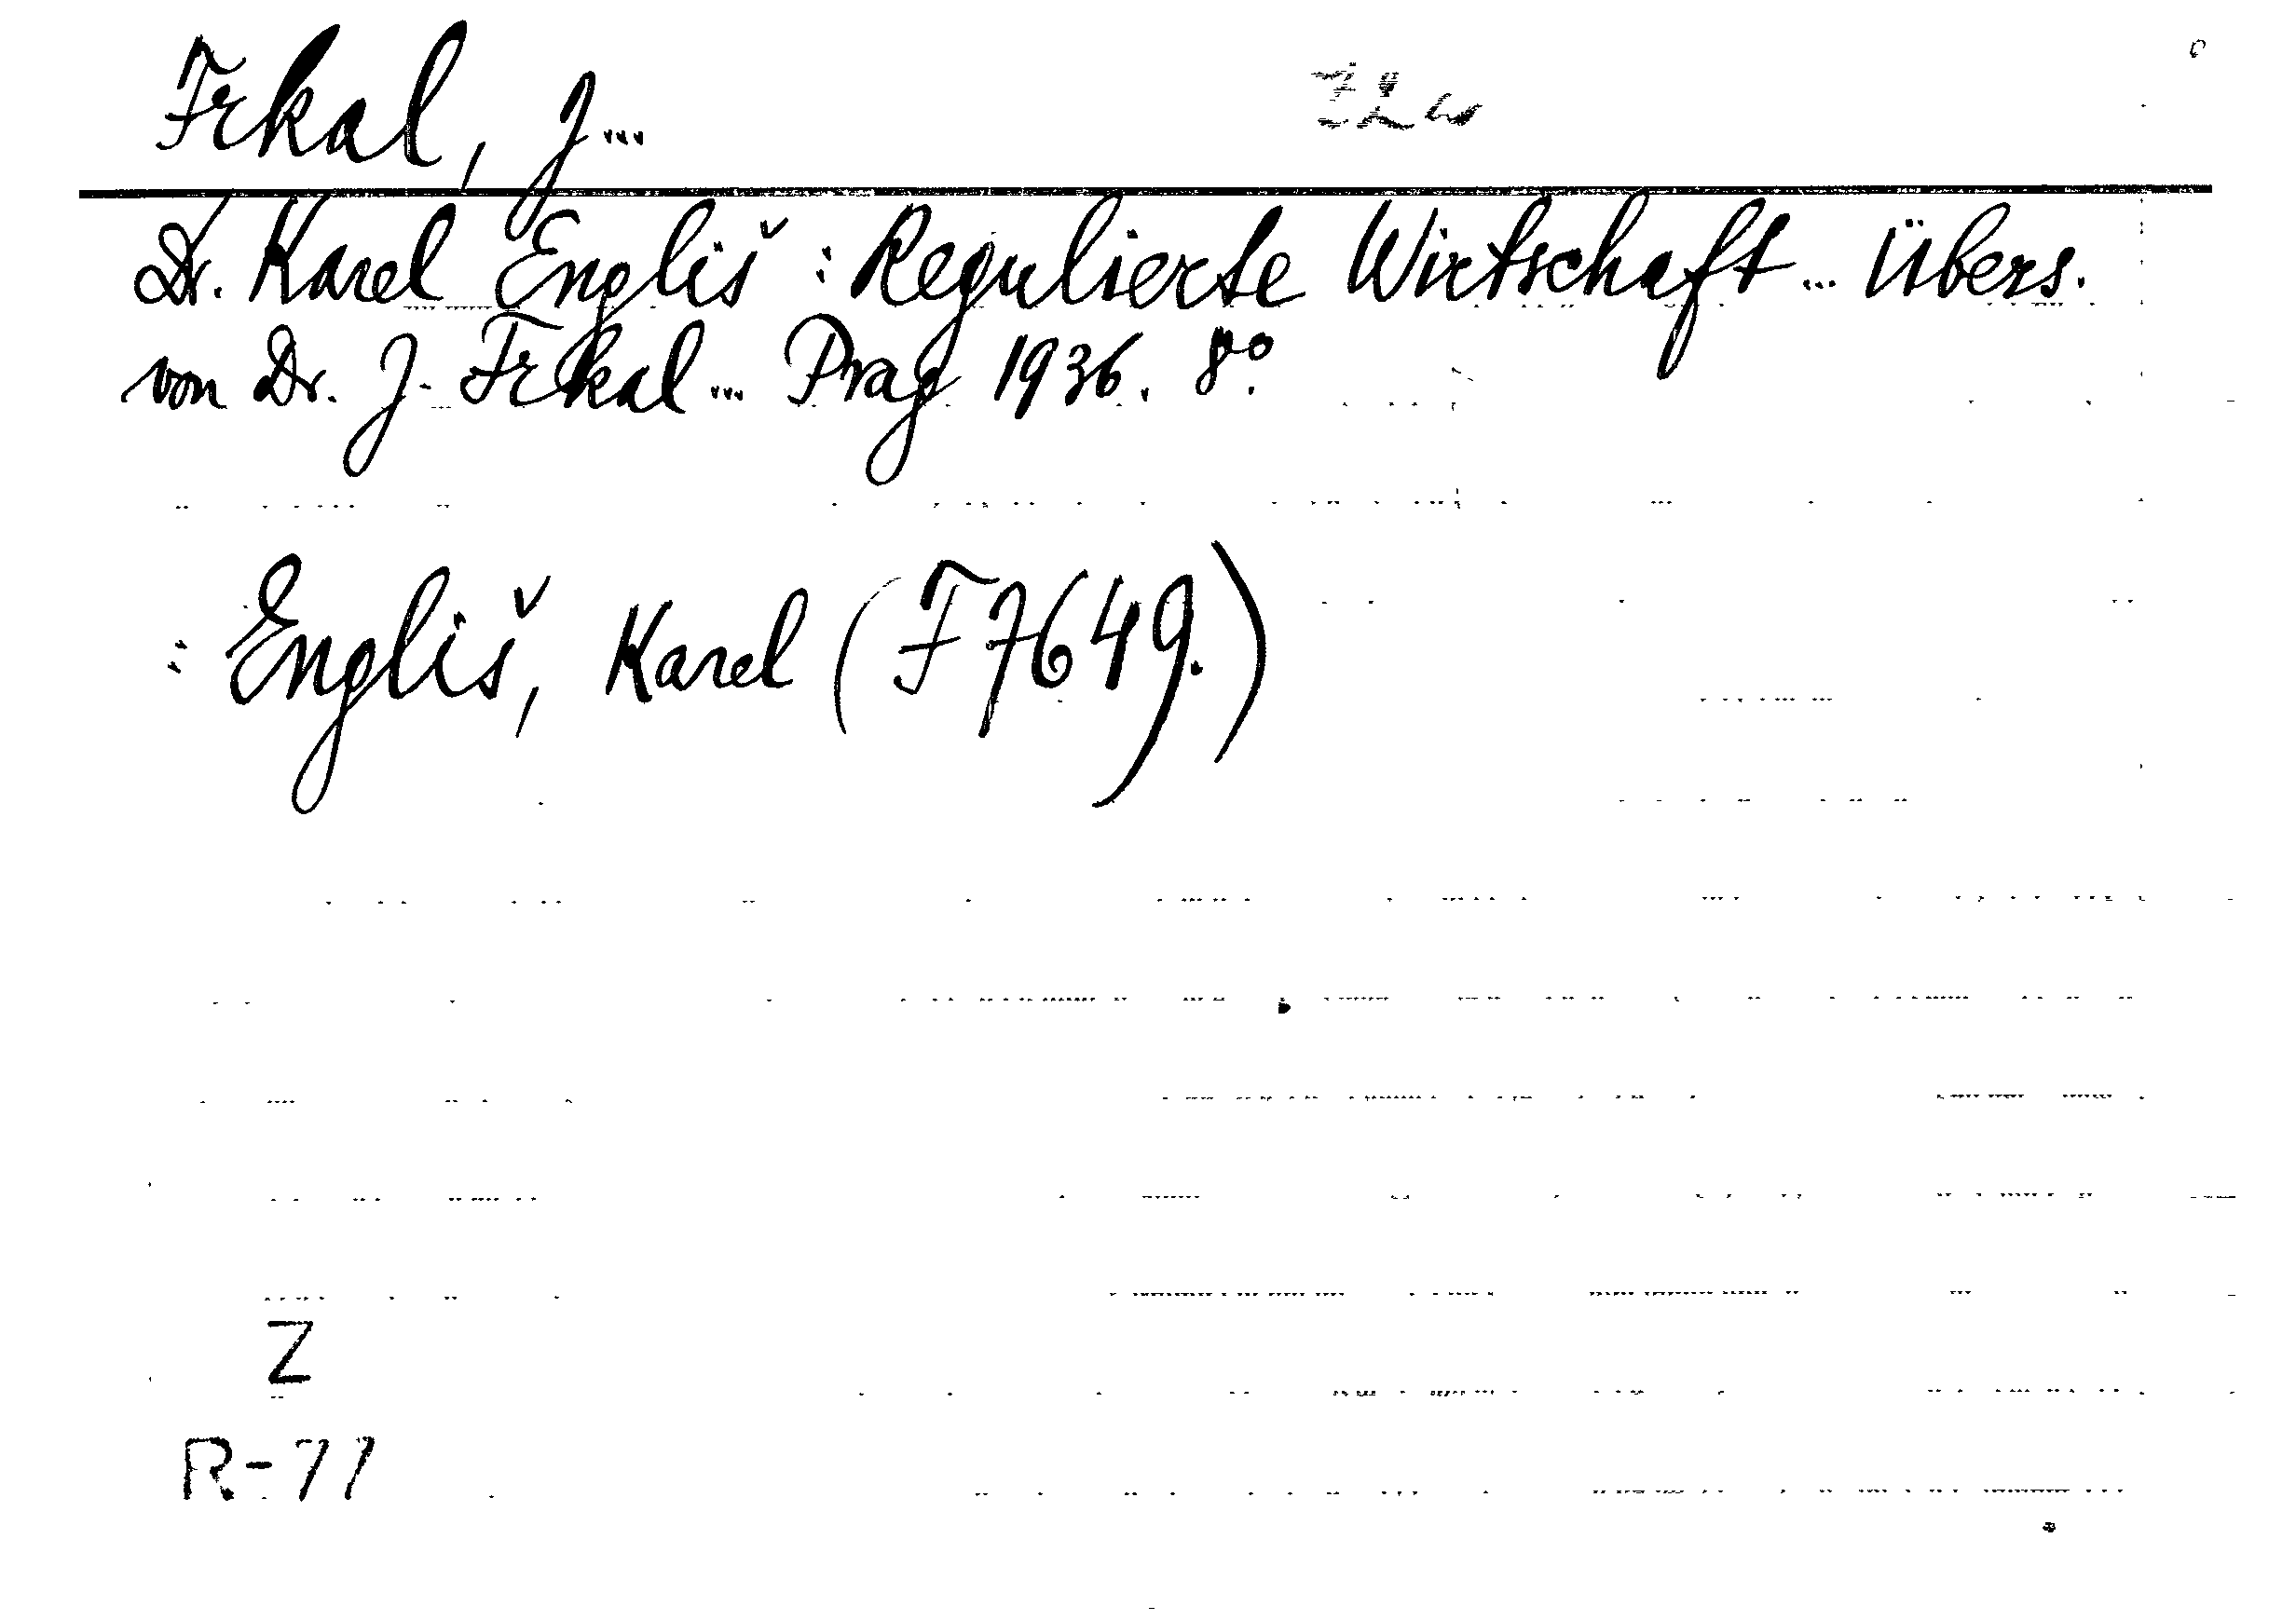 Frkal, J...
Dr. Karel Engliš : Regulierte Wirtschaft... Übers.
von Dr. J. Frkal... Prag 1936. 8°.
: Engliš, Karel (F 7649.)
Z
R-77